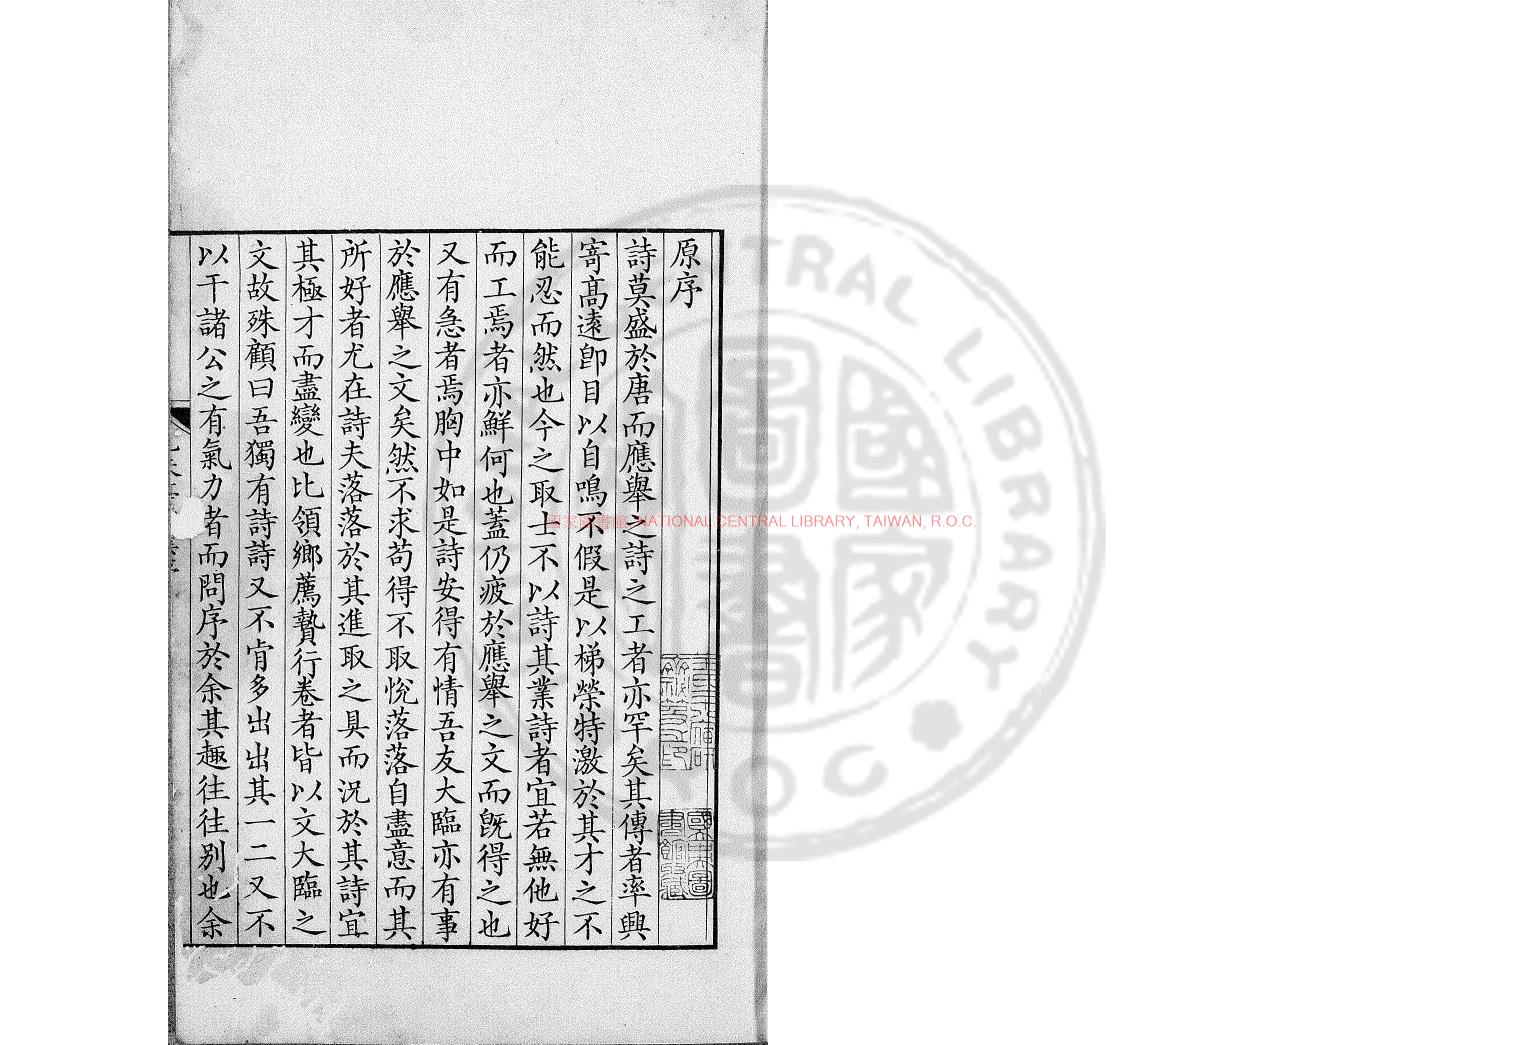 原序
詩莫盛於唐而應舉之詩之工者亦罕矣其傳者率興
寄高遠卽目以自鳴不假是以梯榮特激於其才之不
能忍而然也今之取士不以詩其業詩者宜若無他好
而工焉者亦鮮何也蓋仍疲於應舉之文而旣得之也
又有急者焉胸中如是詩安得有情吾友大臨亦有事
於應舉之文矣然不求苟得不取悅落落自盡意而其
所好者尤在詩夫落落於其進取之具而況於其詩宜
其極才而盡變也比領鄉薦贄行卷者皆以文大臨之
文故殊顧曰吾獨有詩詩又不肯多出出其一二又不
以干諸公之有氣力者而問序於余其趣往往別也余
國立中央圖書館藏
國家圖書館 NATIONAL CENTRAL LIBRARY, TAIWAN, R.O.C.
CENTRAL LIBRARY
ROC
國家圖書館